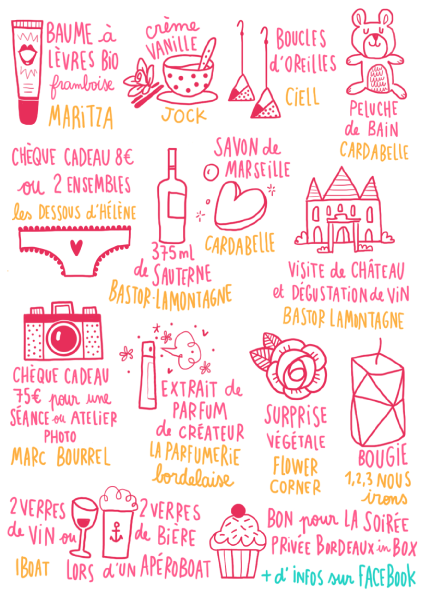 BAUME à
LÈVRES BiO
framboise
MARiTZA
crème
VANiLLE
JOCK
BOUCLES
d'OREiLLES
CiELL
PELUCHE
de BAiN
CARDABELLE
CHÈQUE CADEAU 8€
ou 2 ENSEMBLES
les DESSOUS d'HÉLÈNE
375 ml
de SAUTERNE
BASTOR-LAMONTAGNE
SAVON de
MARSEiLLE
CARDABELLE
ViSiTE de CHÂTEAU
et DÉGUSTATiON de ViN
BASTOR LAMONTAGNE
CHÈQUE CADEAU
75€ pour une
SÉANCE ou ATELiER
PHOTO
MARC BOURREL
EXTRAiT de
PARFUM
de CRÉATEUR
LA PARFUMERiE
bordelaise
SURPRiSE
VÉGÉTALE
FLOWER
CORNER
BOUGiE
1,2,3 NOUS
irons
2 VERRES
de ViN ou
2 VERRES
de BiÈRE
iBOAT
LORS d'UN APÉROBOAT
BON pour LA SOiRÉE
PRiVÉE BORDEAUX in BOX
+ d'iNFOS sur FACEBOOK